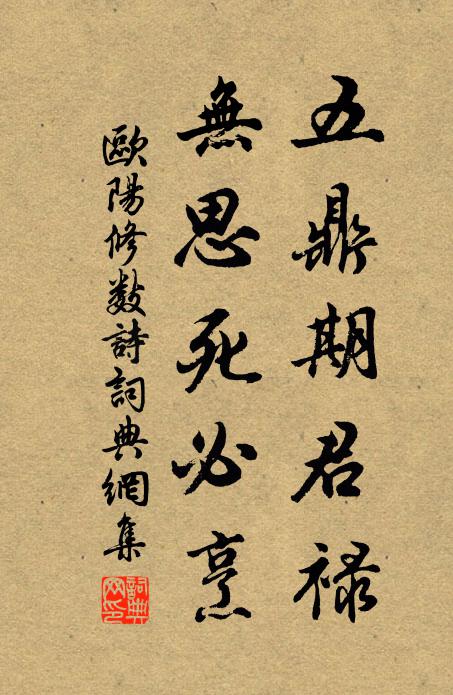 五鼎期君禄
無思死必烹
歐陽修數詩詞典網集
詞典網印